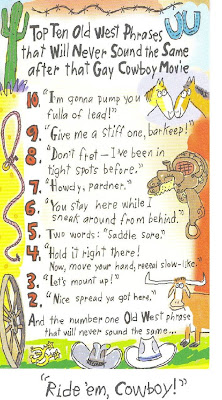 Top Ten Old West Phrases
that Will Never Sound the Same
after that Gay Cowboy Movie
10. "I'm gonna pump you
fulla of lead!"
9. "Give me a stiff one, barkeep!"
8. "Don't fret—I've been in
tight spots before."
7. "Howdy, pardner."
6. "You stay here while I
sneak around from behind."
5. Two words: "Saddle sore."
4. "Hold it right there!
Now, move your hand, reeeal slow-like."
3. "Let's mount up!"
2. "Nice spread ya got here."
And the number one Old West phrase
that will never sound the same...
"Ride 'em, Cowboy!"